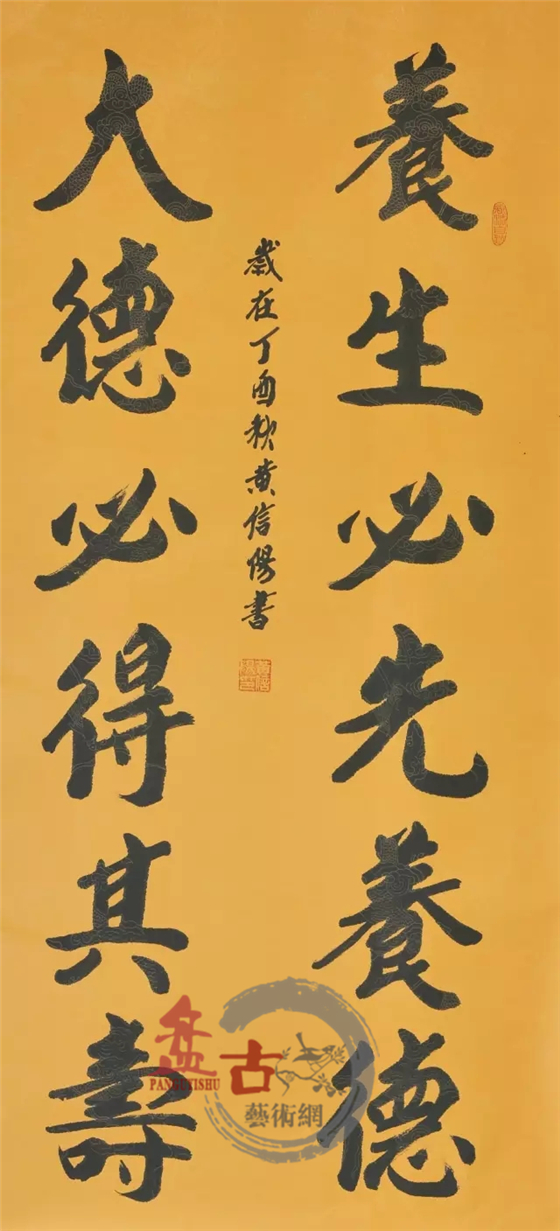 養生必先養德
大德必得其壽
歲在丁酉秋黄信陽書
盘古
PANGUYISHU
藝術網